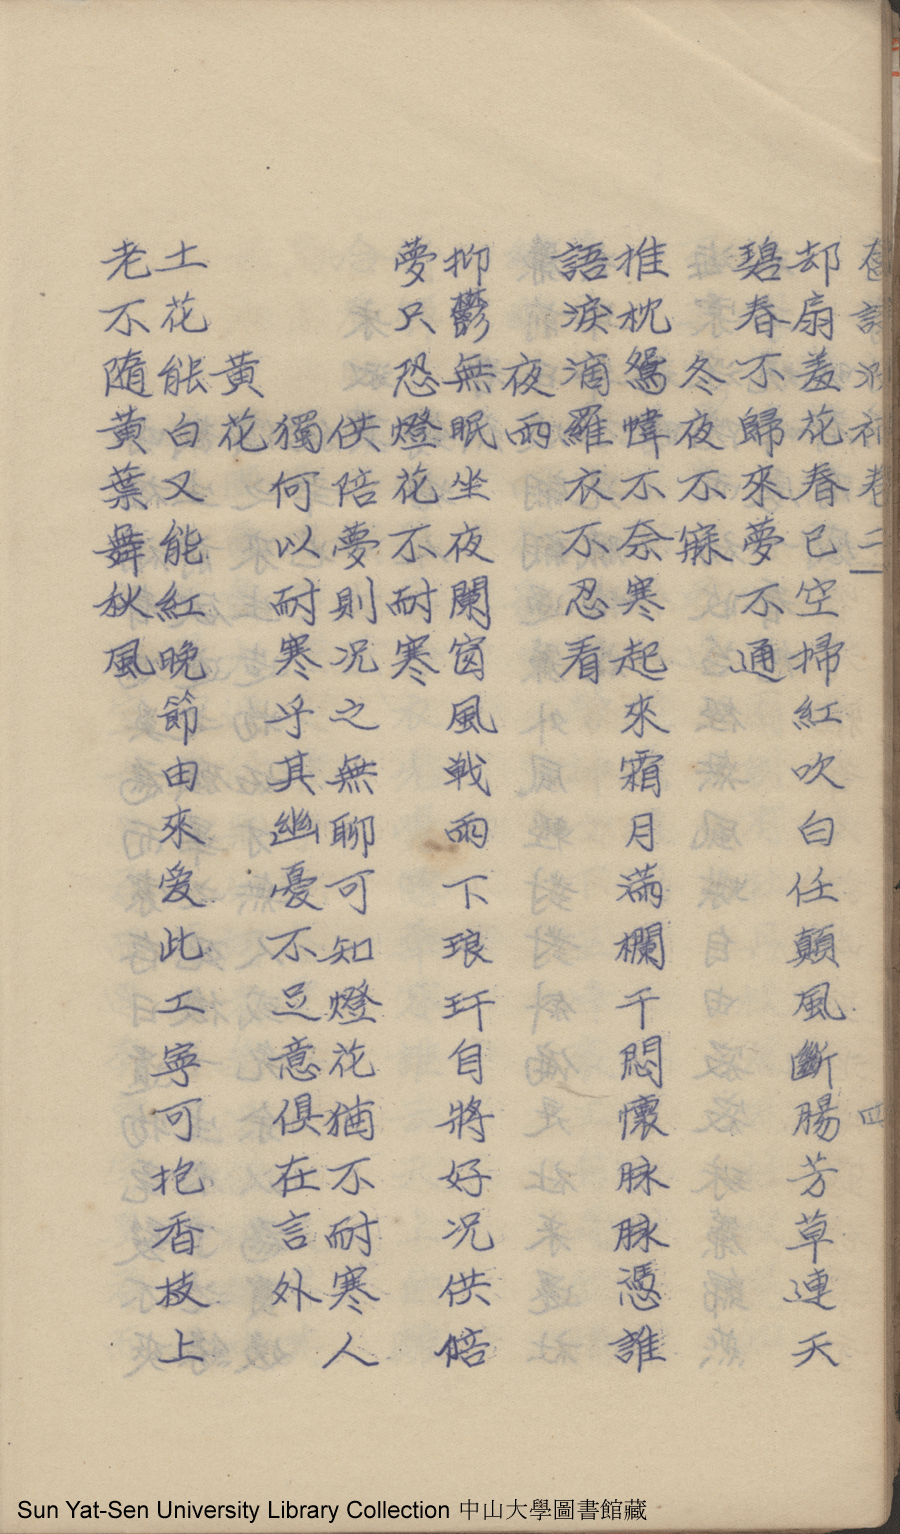 卷二 四
却扇羞花春已空掃紅吹白任顛風斷腸芳草連天
碧春不歸來夢不通
冬夜不寐
推枕鴛幃不奈寒起來霜月滿欄干悶懷脉脉憑誰
語淚滴羅衣不忍看
夜雨
抑鬱無眠坐夜闌窗風戰雨下琅玕自將好况供倍
夢只恐燈花不耐寒
供陪夢則况之無聊可知燈花猶不耐寒人
獨何以耐寒乎其幽憂不足意俱在言外
黃花
土花能白又能紅晚節由來爱此工寧可抱香枝上
老不隨黃葉舞秋風
Sun Yat-Sen University Library Collection 中山大學圖書館藏